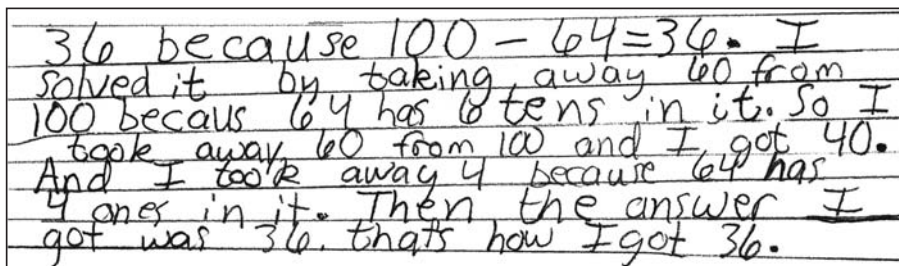 36 because 100 - 64=36. I
solved it by taking away 60 from
100 becaus 64 has 6 tens in it. So I
took away 60 from 100 and I got 40.
And I took away 4 because 64 has
4 ones in it. Then the answer I
got was 36. thats how I got 36.